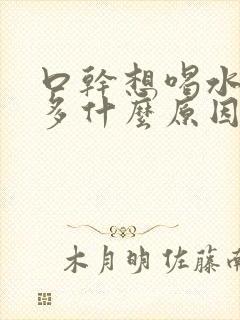 口幹想喝水
多什麼原因
木月明佐藤南